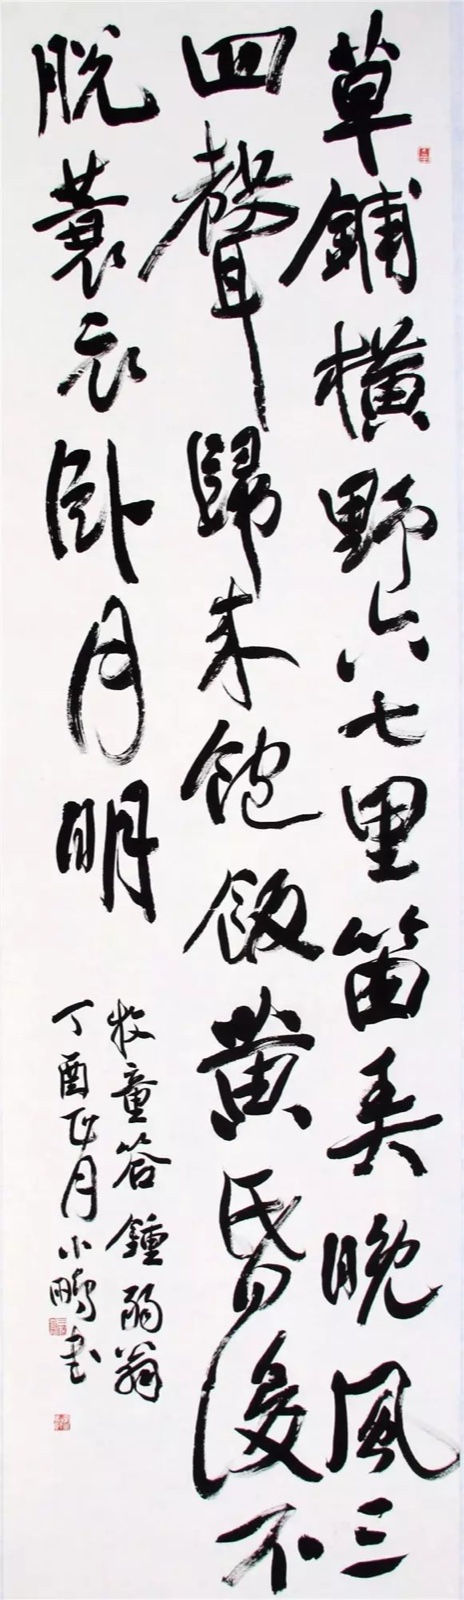 草鋪橫野六七里笛弄晚風三
四聲歸來飽飯黃昏後不
脫蓑衣卧月明
牧童答鍾弱翁
丁酉正月小鵬書